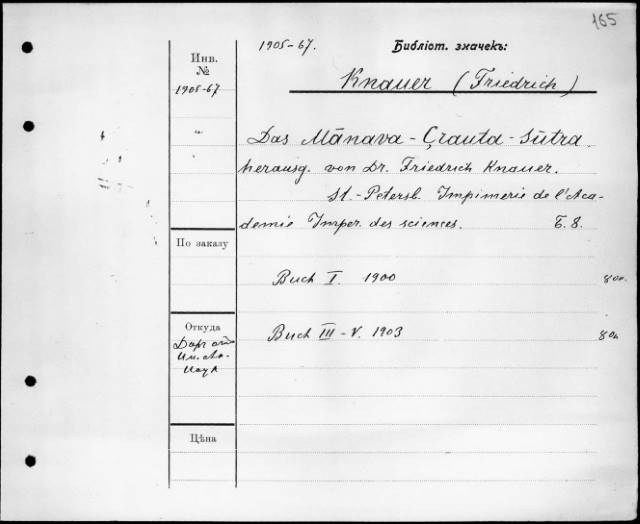 165
1905-67.
Библіот. значекъ:
Инв.
№
1905-67
Knauer (Friedrich)
Das Mānava-Çrauta-Sūtra
herausg. von Dr. Friedrich Knauer.
St.-Petersb. Impimerie de l'Aca-
demie Imper. des sciences. Б. 8.
По заказу
Buch I. 1900
Откуда
Buch III-V. 1903
Цѣна